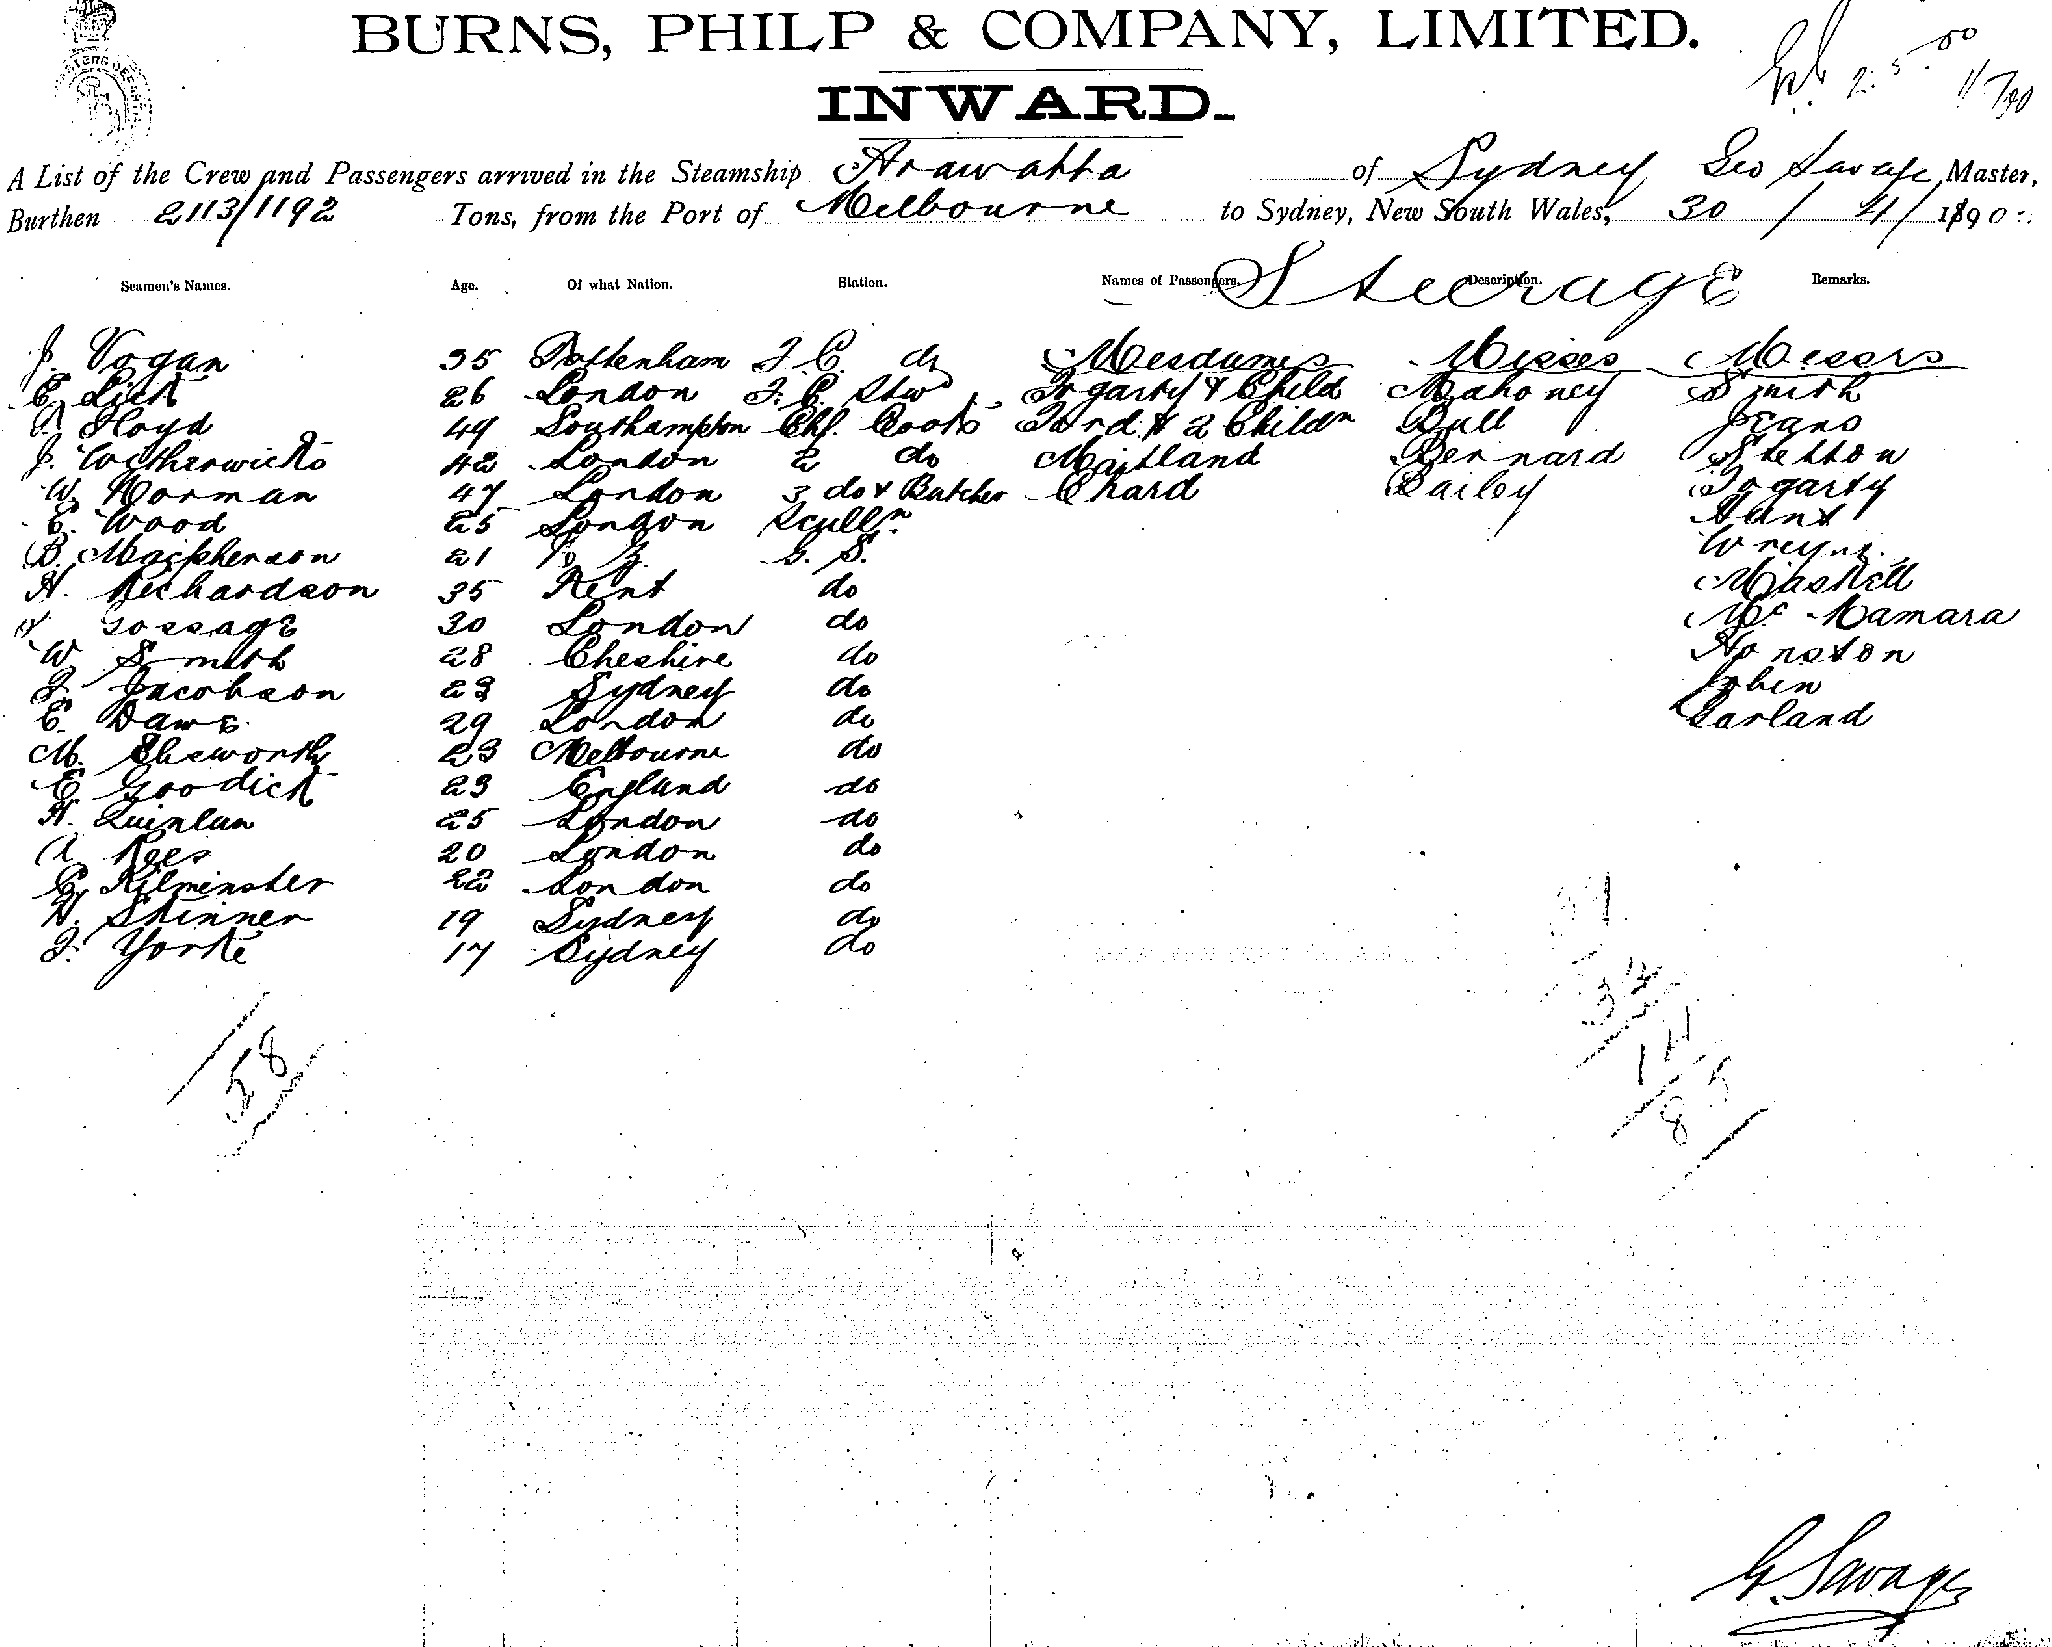 BURNS, PHILP & COMPANY, LIMITED.
INWARD.
A List of the Crew and Passengers arrived in the Steamship Arawatta of Sydney Geo Savage Master,
Burthen 2113/1192 Tons, from the Port of Melbourne to Sydney, New South Wales, 30/4/1890
Seamen's Names. Age. Of what Nation. Station. Names of Passengers. Description. Remarks.
Steerage
J. Vogan 35 Tottenham F.C. do Mesdames Misses Messrs
E. Lick 26 London F.C. Stw Fogarty & Child Mahoney Smith
Floyd 49 Southampton Chf. Cook Ford & 2 Childn Bull Jeans
J. Wetherwicks 42 London 2 do Maitland Bernard Stetton
W. Norman 47 London 3 do & Butcher Chard Bailey Fogarty
E. Wood 25 London Sculln Hunt
B. Macpherson 21 G.S.
H. Richardson 35 Kent do Maskell
Gossage 30 London do McNamara
W Smith 28 Cheshire do Honston
F. Jacobson 23 Sydney do
E. Dawe 29 London do Garland
M. Elseworth 23 Melbourne do
E Goodick 23 England do
H. Quinlan 25 London do
A Rees 20 London do
C. Kilminster 22 London do
H. Skinner 19 Sydney do
F. Yorke 17 Sydney do
58
34
14
85
G. Savage